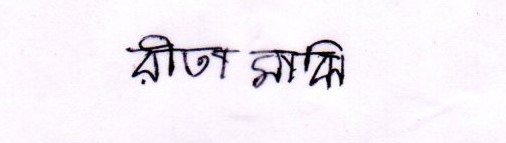 রীতা মাঝি